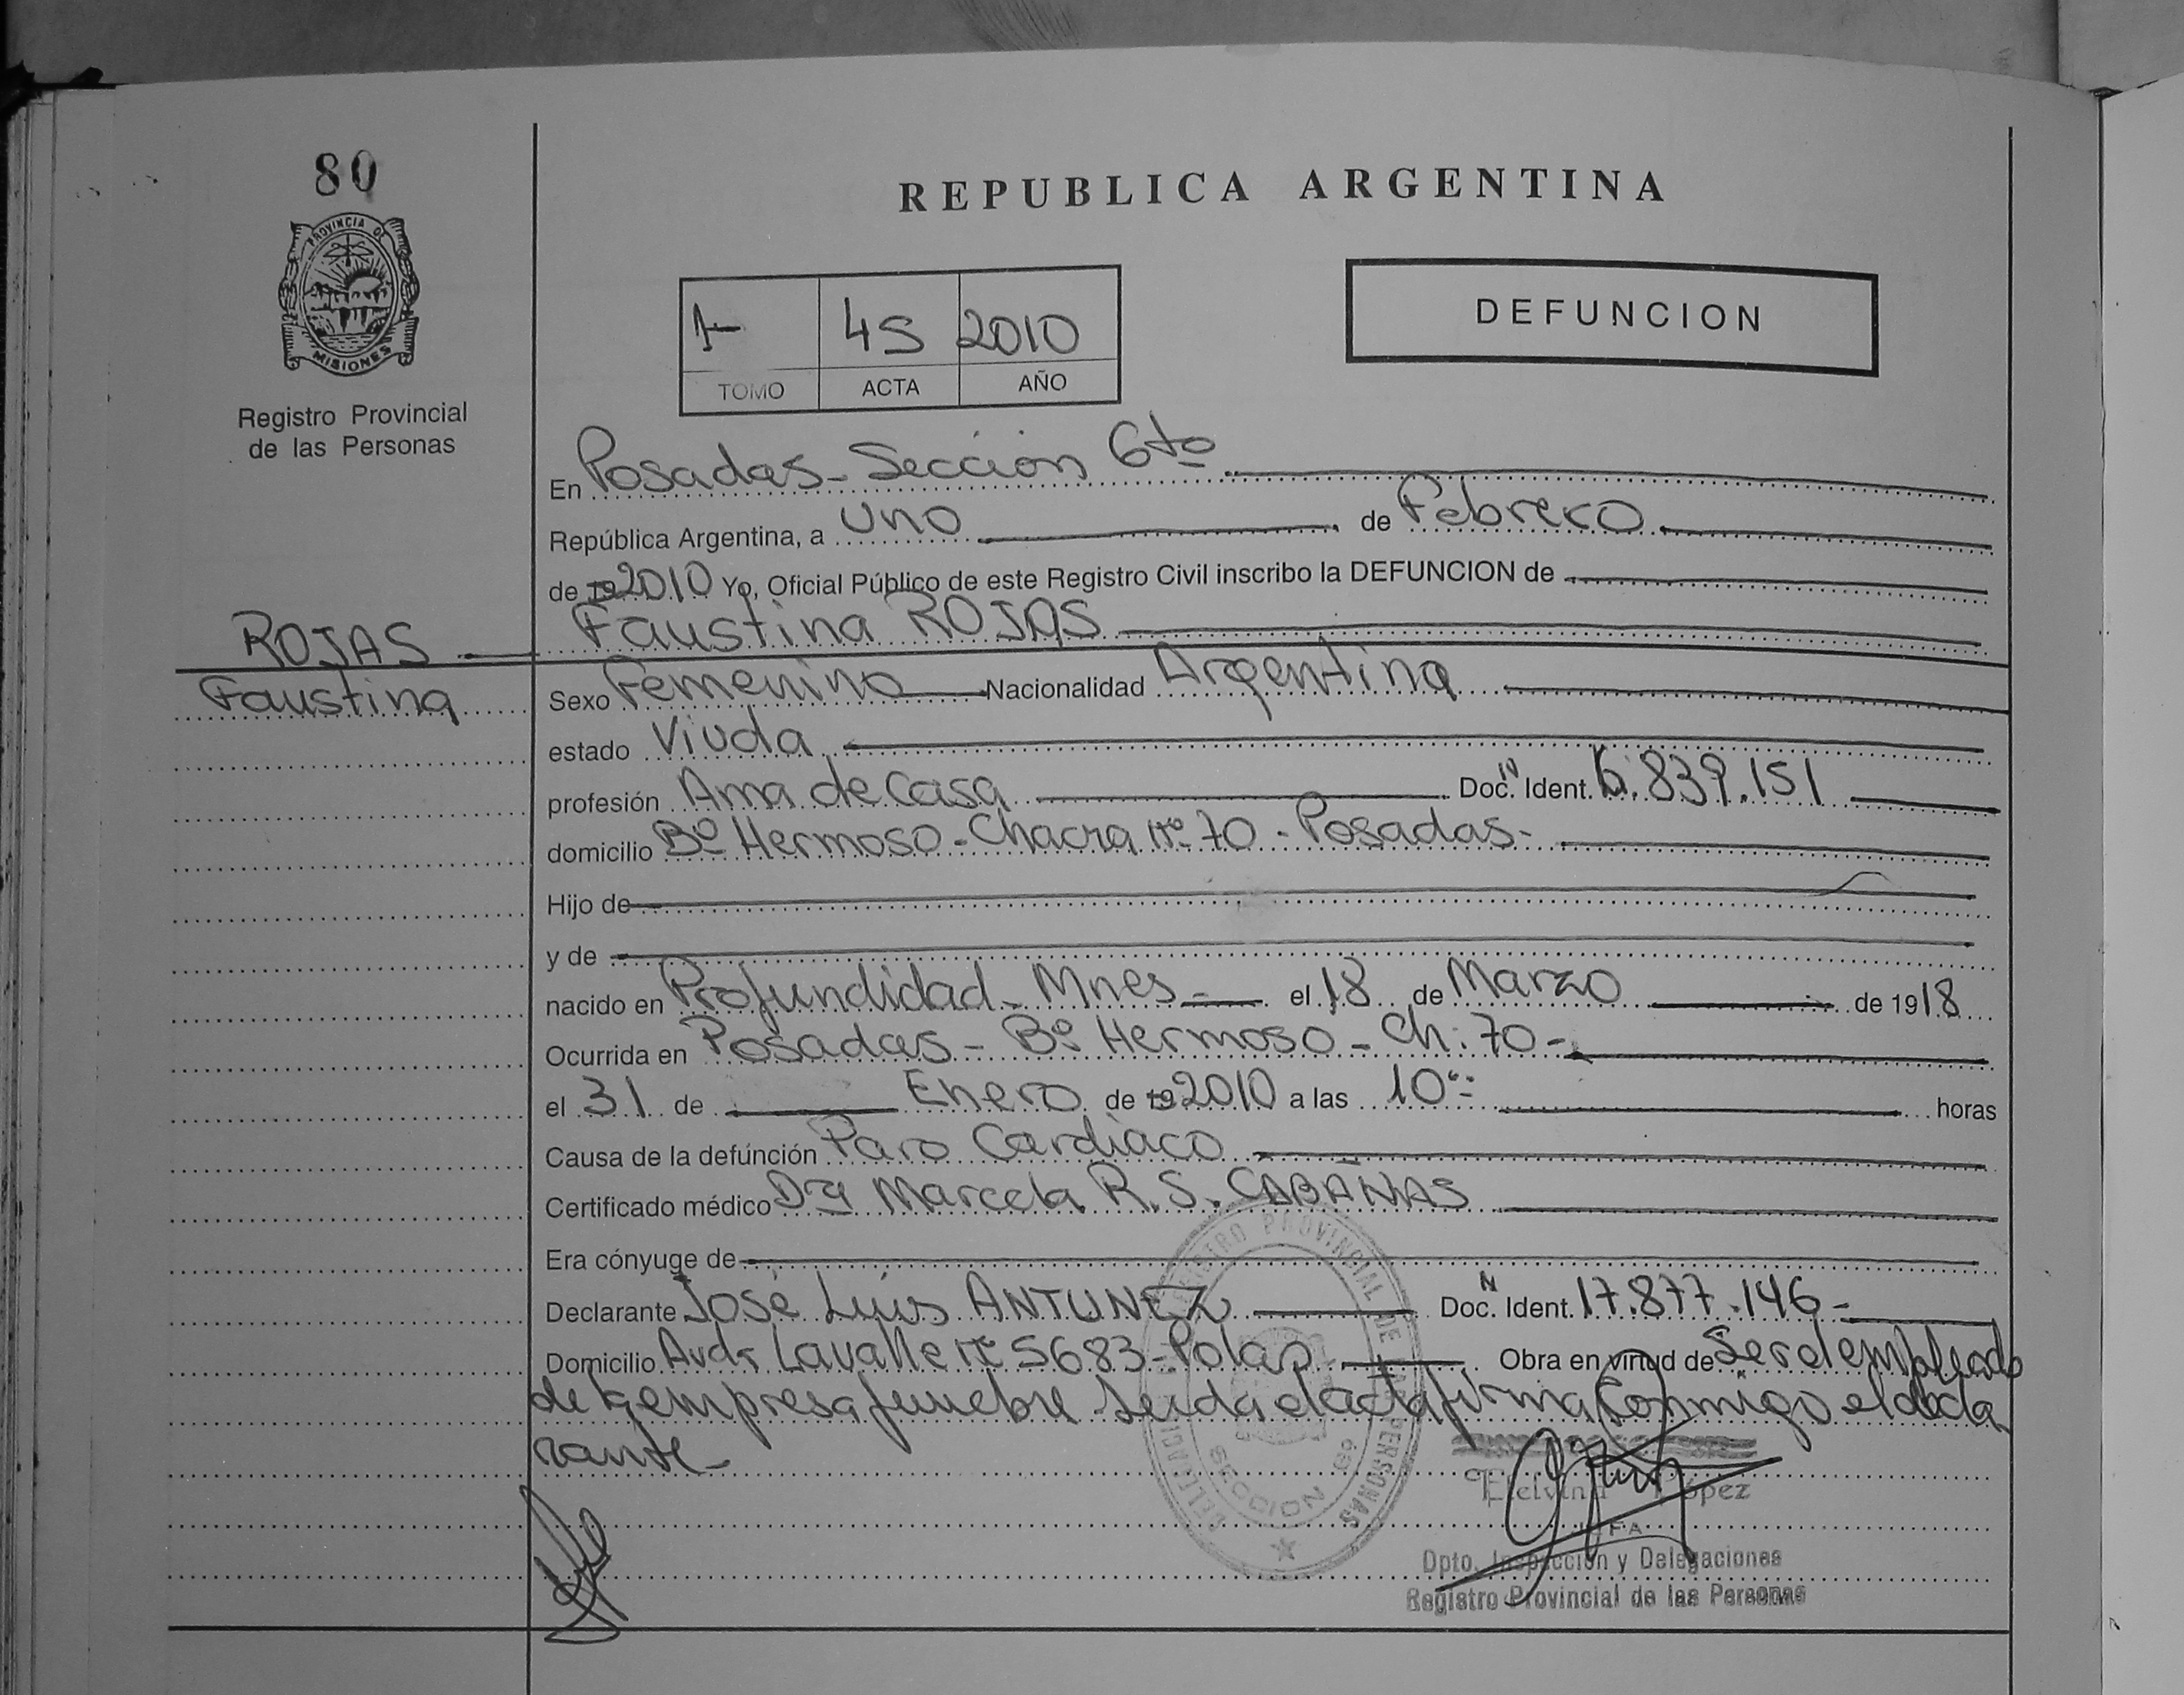 80
PROVINCIA DE
MISIONES
Registro Provincial
de las Personas
REPUBLICA ARGENTINA
1 45 2010
TOMO ACTA AÑO
DEFUNCION
En Posadas - Sección 6to
República Argentina, a uno de Febrero
de 19 2010 Yo, Oficial Público de este Registro Civil inscribo la DEFUNCION de
ROJAS
Faustina
Faustina ROJAS
Sexo Femenino Nacionalidad Argentina
estado Viuda
profesión Ama de Casa Doc. N Ident. 6.839.151
domicilio Bº Hermoso - Chacra Nº 70 - Posadas -
Hijo de
y de
nacido en Profundidad - Mnes - el 18 de Marzo de 1918
Ocurrida en Posadas - Bº Hermoso - Ch: 70 -
el 31 de Enero de 19 2010 a las 10 horas
Causa de la defunción Paro Cardiaco
Certificado médico Dra Marcela R. S. CABAÑAS
Era cónyuge de
Declarante José Luis ANTUNEZ Doc. N Ident. 17.877.146 -
Domicilio Avda Lavalle Nº 5683 - Pdas Obra en virtud de Ser el empleado
de la empresa funebre Leida el acta firma Conmigo el decla
rante -
REGISTRO PROVINCIAL DE LAS PERSONAS
SECCION 6a
López
Dpto. Inspección y Delegaciones
Registro Provincial de las Personas